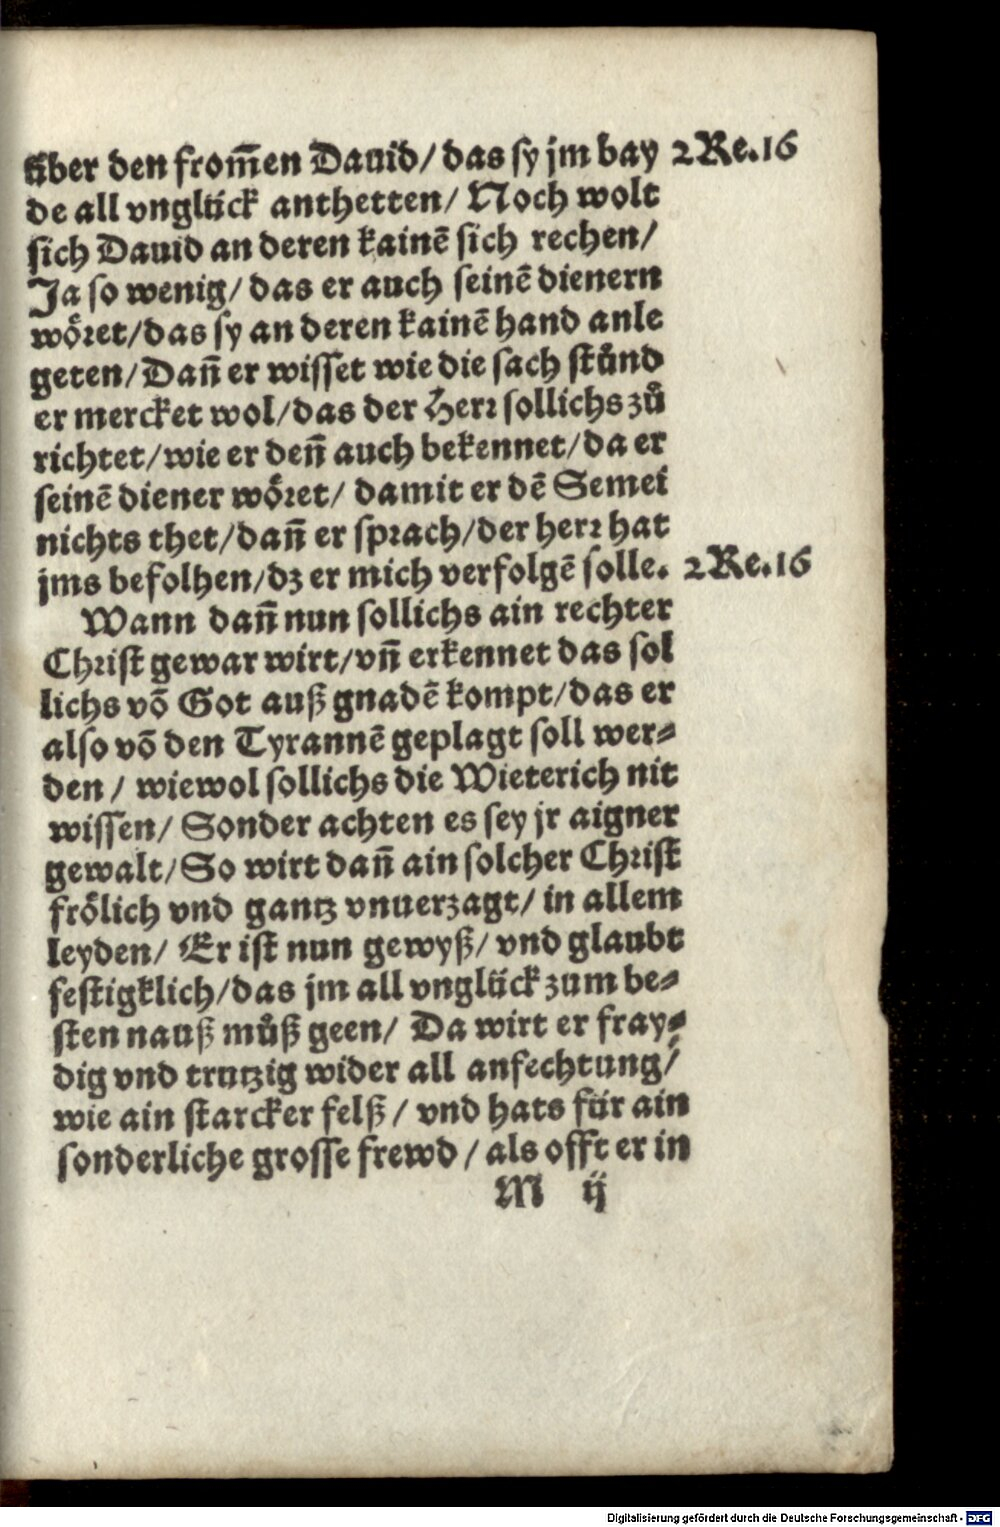 über den from̃en Dauid/ das sy jm bay 2 Re.16
de all vnglück anthetten/ Noch wolt
sich Dauid an deren kainẽ sich rechen/
Ja so wenig/ das er auch seinẽ dienern
wöret/ das sy an deren kainẽ hand anle
geten/ Dañ er wisset wie die sach stůnd
er mercket wol/ das der Herr sollichs zů
richtet/ wie er deñ auch bekennet/ da er
seinẽ diener wöret/ damit er dẽ Semei
nichts thet/ dañ er sprach/ der herr hat
jms befolhen/ dz er mich verfolgẽ solle. 2 Re.16
Wann dañ nun sollichs ain rechter
Christ gewar wirt/ vñ erkennet das sol
lichs võ Got auß gnadẽ kompt/ das er
also võ den Tyrannẽ geplagt soll wer-
den/ wiewol sollichs die Wieterich nit
wissen/ Sonder achten es sey jr aigner
gewalt/ So wirt dañ ain solcher Christ
frölich vnd gantz vnuerzagt/ in allem
leyden/ Er ist nun gewyß/ vnd glaubt
festigklich/ das jm all vnglück zum be-
sten nauß můß geen/ Da wirt er fray-
dig vnd trutzig wider all anfechtung/
wie ain starcker felß/ vnd hats für ain
sonderliche grosse frewd/ als offt er in
M ij
Digitalisierung gefördert durch die Deutsche Forschungsgemeinschaft - DFG